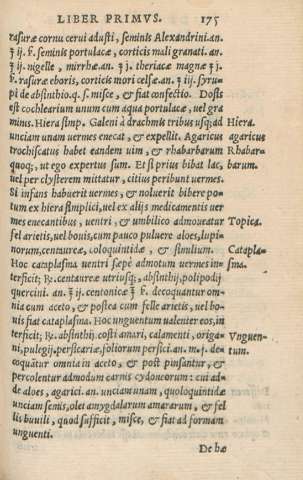 LIBER PRIMVS. 175
rasuræ cornu cerui adusti, seminis Alexandrini. an.
ʒ ij. ß. seminis portulacæ, corticis mali granati. an.
ʒ ij. nigellæ, mirrhæ. an. ʒ j. theriacæ magnæ ʒ j.
ß. rasuræ eboris, corticis mori celsæ. an. ʒ iij. syru-
pi de absinthio. q. s. misce, & fiat confectio. Dosis
est cochlearium unum cum aqua portulacæ, uel gra
minis. Hiera simp. Galeni à drachmis tribus usq; ad Hiera.
unciam unam uermes enecat, & expellit. Agaricus Agaricus
trochiscatus habet eandem uim, & rhabarbarum Rhabar-
quoq;, ut ego expertus sum. Et si prius bibat lac, barum.
uel per clysterem mittatur, citius peribunt uermes.
Si infans habuerit uermes, & noluerit bibere po-
tum ex hiera simplici, uel ex alijs medicamentis uer
mes enecantibus, uentri, & umbilico admoueatur Topica.
fel arietis, uel bouis, cum pauco puluere aloes, lupi-
norum, centaureæ, coloquintidæ, & similium. Catapla-
Hoc cataplasma uentri sæpè admotum uermes in- sma.
terficit; ℞. centaureæ utriusq;, absinthij, polipodij
quercini. an. ʒ ij. centonicæ ʒ ß. decoquantur om-
nia cum aceto, & postea cum felle arietis, uel bo-
uis fiat cataplasma. Hoc unguentum ualenter eos, in
terficit; ℞. absinthij. costi amari, calamenti, origa- Vnguen-
ni, pulegij. persicariæ, foliorum persici. an. m. j. de- tum.
coquãtur omnia in aceto, & post pinsantur, &
percolentur admodum carnis cydoneorum: cui ad-
de aloes, agarici. an. unciam unam, quoloquintidæ
unciam semis, olei amygdalarum amararum, & fel
lis buuili, quod sufficit, misce, & fiat ad formam
unguenti.
De hæ